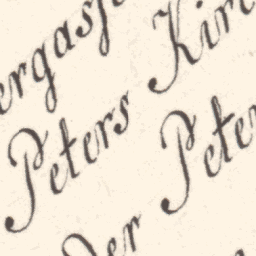 ergas
Peters Kir
Der Peter